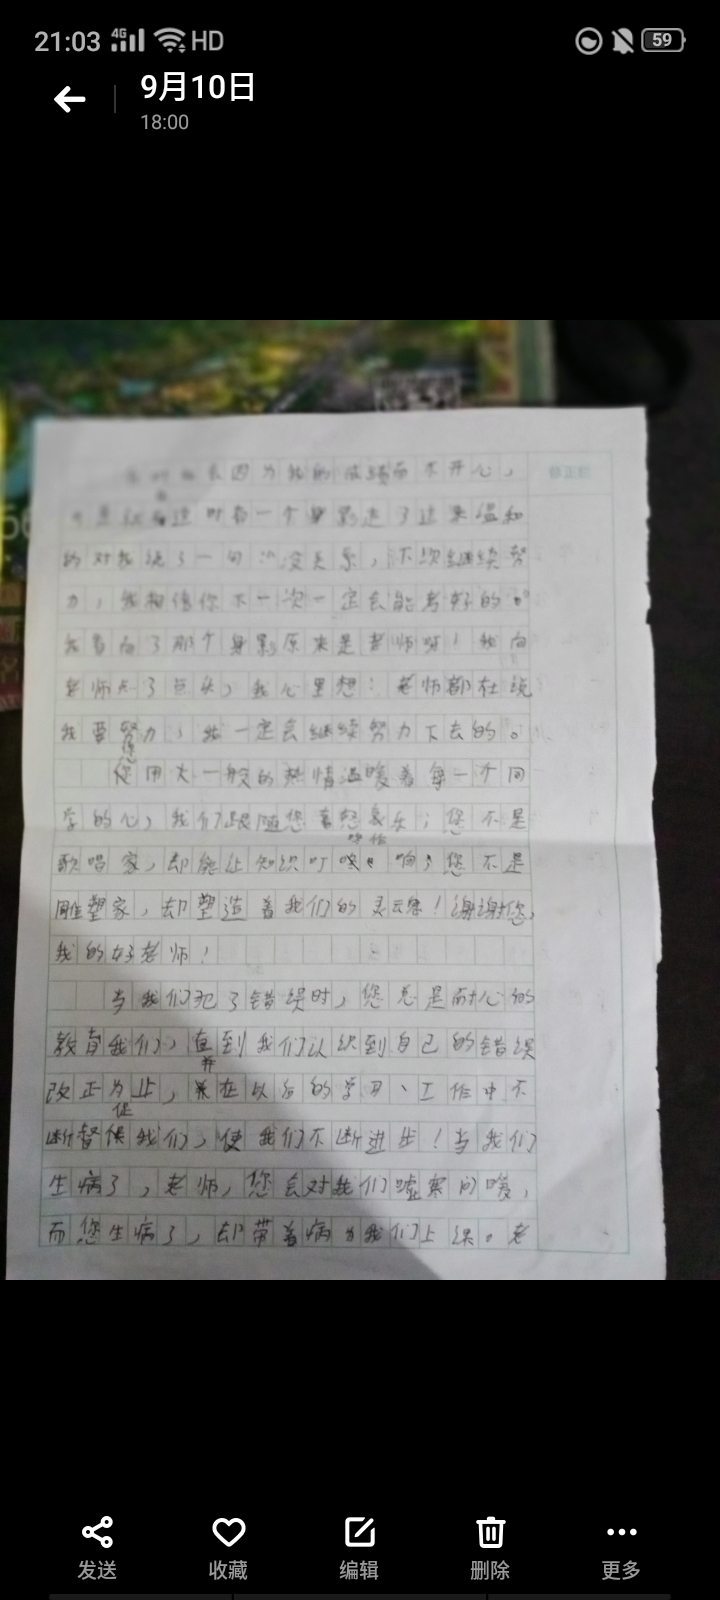 21:03 4G HD 59
9月10日
18:00
因为我的成绩而不开心，
这时有一个身影走了过来温和
的对我说了一句：没关系，下次继续努
力，我相信你下一次一定会能考好的。
我看向了那个身影原来是老师呀！我向
老师点了点头，我心里想：老师都在说
我要努力，我一定会继续努力下去的。
您用火一般的热情温暖着每一个同
学的心，我们跟随您喜怒哀乐；您不是
歌唱家，却能让知识叮咚作响；您不是
雕塑家，却塑造着我们的灵魂！谢谢您，
我的好老师！
当我们犯了错误时，您总是耐心的
教育我们，直到我们认识到自己的错误
改正为止，并在以后的学习、工作中不
断督促我们，使我们不断进步！当我们
生病了，老师，您会对我们嘘寒问暖，
而您生病了，却带着病为我们上课。老
发送 收藏 编辑 删除 更多